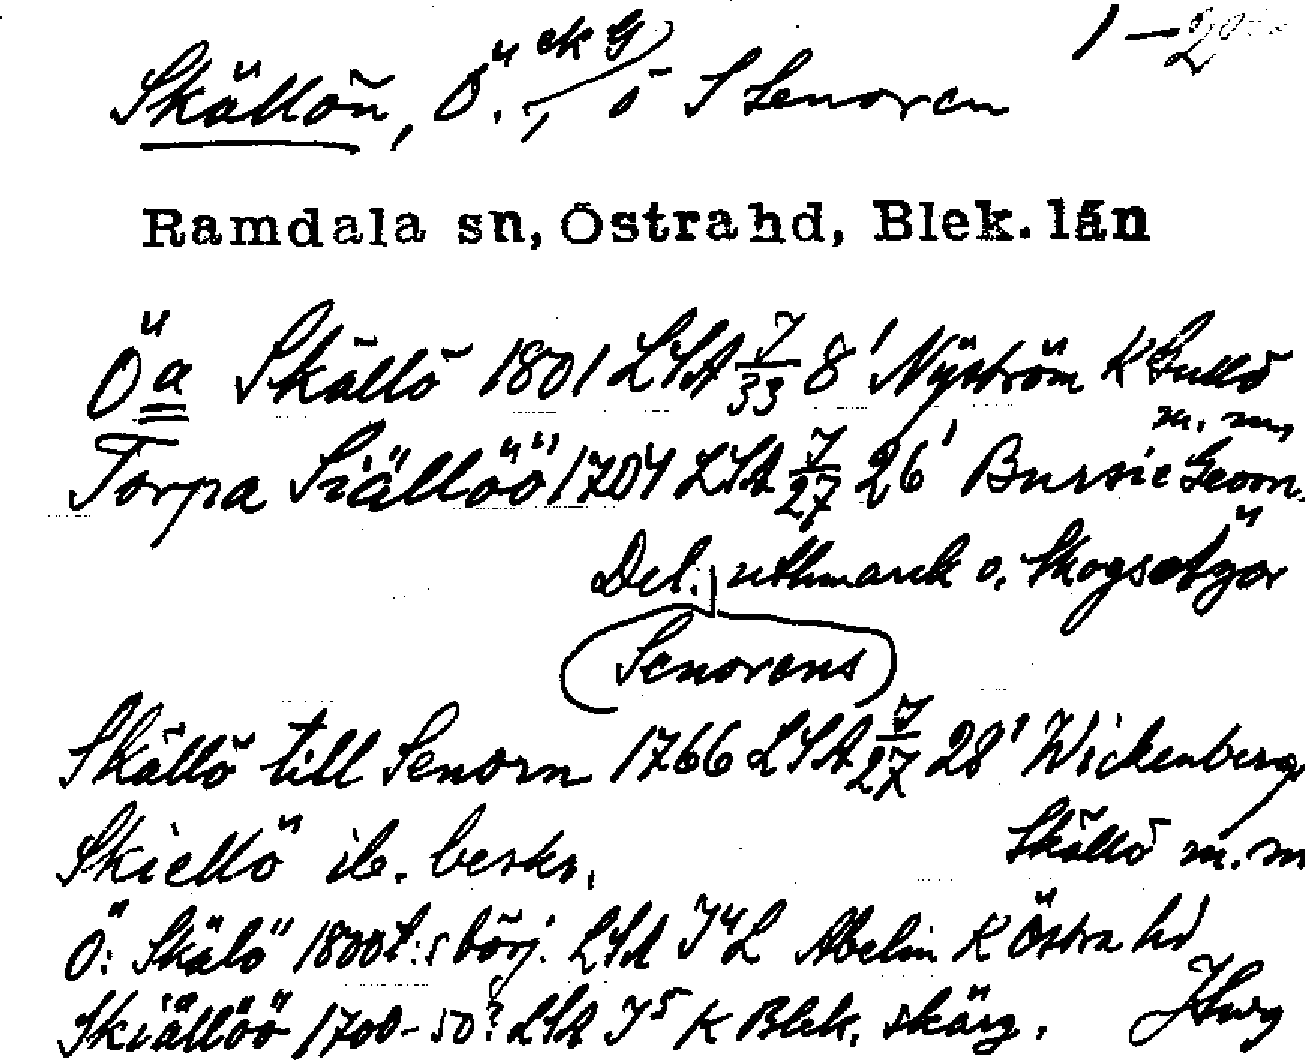 1 – 2
Skällön, Ö., ek G, ö S Senoren
Ramdala sn, Östra hd, Blek. län
Öa Skällö 1801 LSA J/33 8' Nyström K Gullö
m. m.
Torpa Siällöö 1704 LSA J/27 26' Bursie Geom.
Del. uthmarck o. Skogsägor
Senorens
Skällö till Senorn 1766 LSA J/27 28' Wickenberg
Skällö m. m
Skiellö ib. beskr.
Ö: Skälö 1800t:s börj. LSA J4 L Abelin K Östra hd
Skiällöö 1700-50? LSA J5 K Blek. skärg.